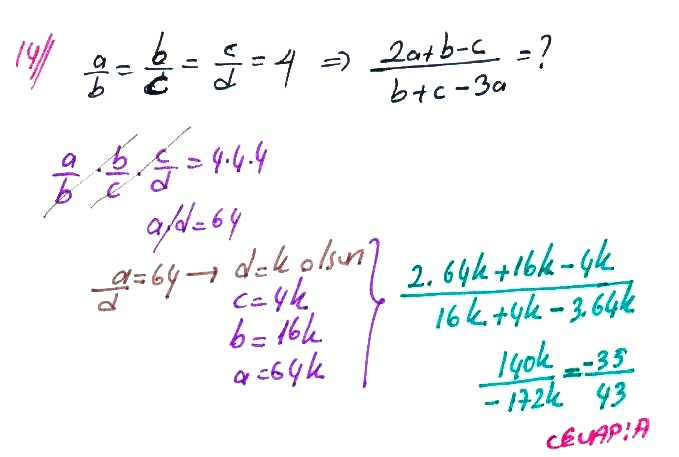 14// a/b = b/c = c/d = 4 ⇒ (2a+b-c)/(b+c-3a) = ?
a/b · b/c · c/d = 4·4·4
a/d = 64
a/d = 64 → d=k olsun
c=4k
b=16k
a=64k
(2.64k+16k-4k)/(16k+4k-3.64k)
140k/-172k = -35/43
CEVAP:A